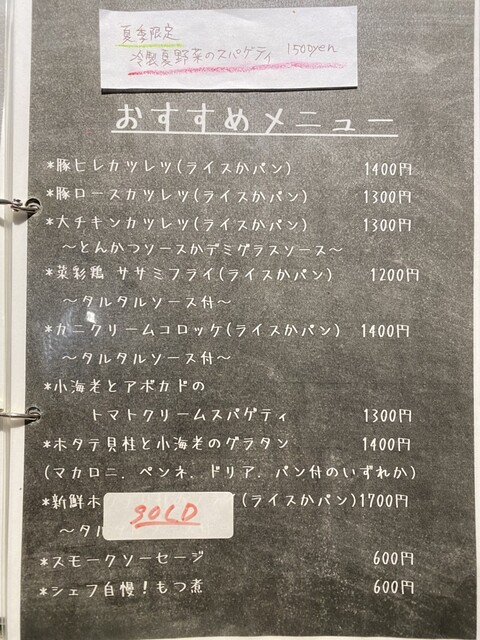 夏季限定
冷製夏野菜のスパゲティ 1500yen
おすすめメニュー
*豚ヒレカツレツ(ライスかパン) 1400円
*豚ロースカツレツ(ライスかパン) 1300円
*大チキンカツレツ(ライスかパン) 1300円
～とんかつソースかデミグラスソース～
*菜彩鶏 ササミフライ(ライスかパン) 1200円
～タルタルソース付～
*カニクリームコロッケ(ライスかパン) 1400円
～タルタルソース付～
*小海老とアボカドの
トマトクリームスパゲティ 1300円
*ホタテ貝柱と小海老のグラタン 1400円
(マカロニ．ペンネ．ドリア．パン付のいずれか)
*新鮮ホ (ライスかパン)1700円
SOLD
～タル
*スモークソーセージ 600円
*シェフ自慢！もつ煮 600円